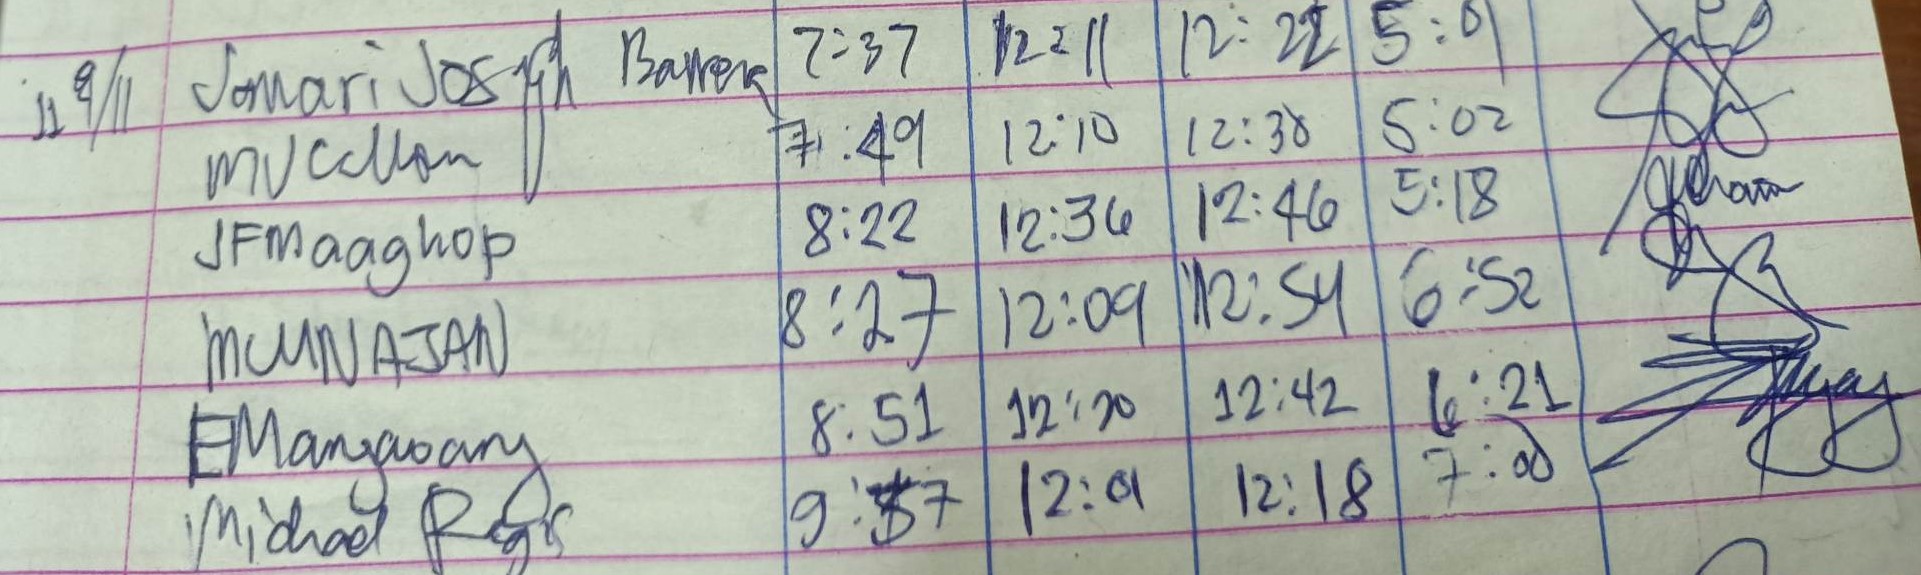 9/11 Jomari Joseph 7:37 12:11 12:22 5:01
7:49 12:10 12:30 5:02
JFMaaghop 8:22 12:36 12:46 5:18
MCMNAJAN 8:27 12:09 12:54 6:52
8:51 12:20 12:42 6:21
Michael Regis 9:37 12:01 12:18 7:00